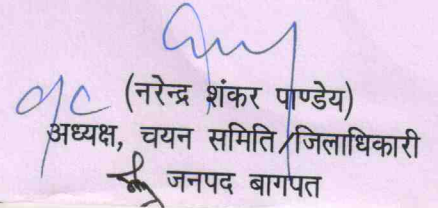 (नरेन्द्र शंकर पाण्डेय)
अध्यक्ष, चयन समिति/जिलाधिकारी
जनपद बागपत